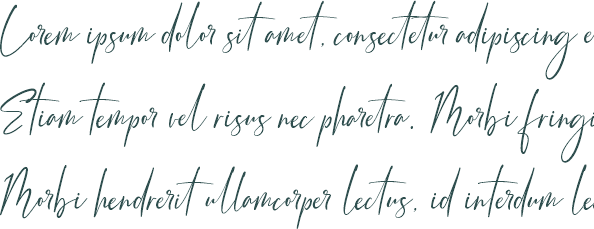 Lorem ipsum dolor sit amet, consectetur adipiscing e
Etiam tempor vel risus nec pharetra. Morbi fringi
Morbi hendrerit ullamcorper lectus, id interdum le